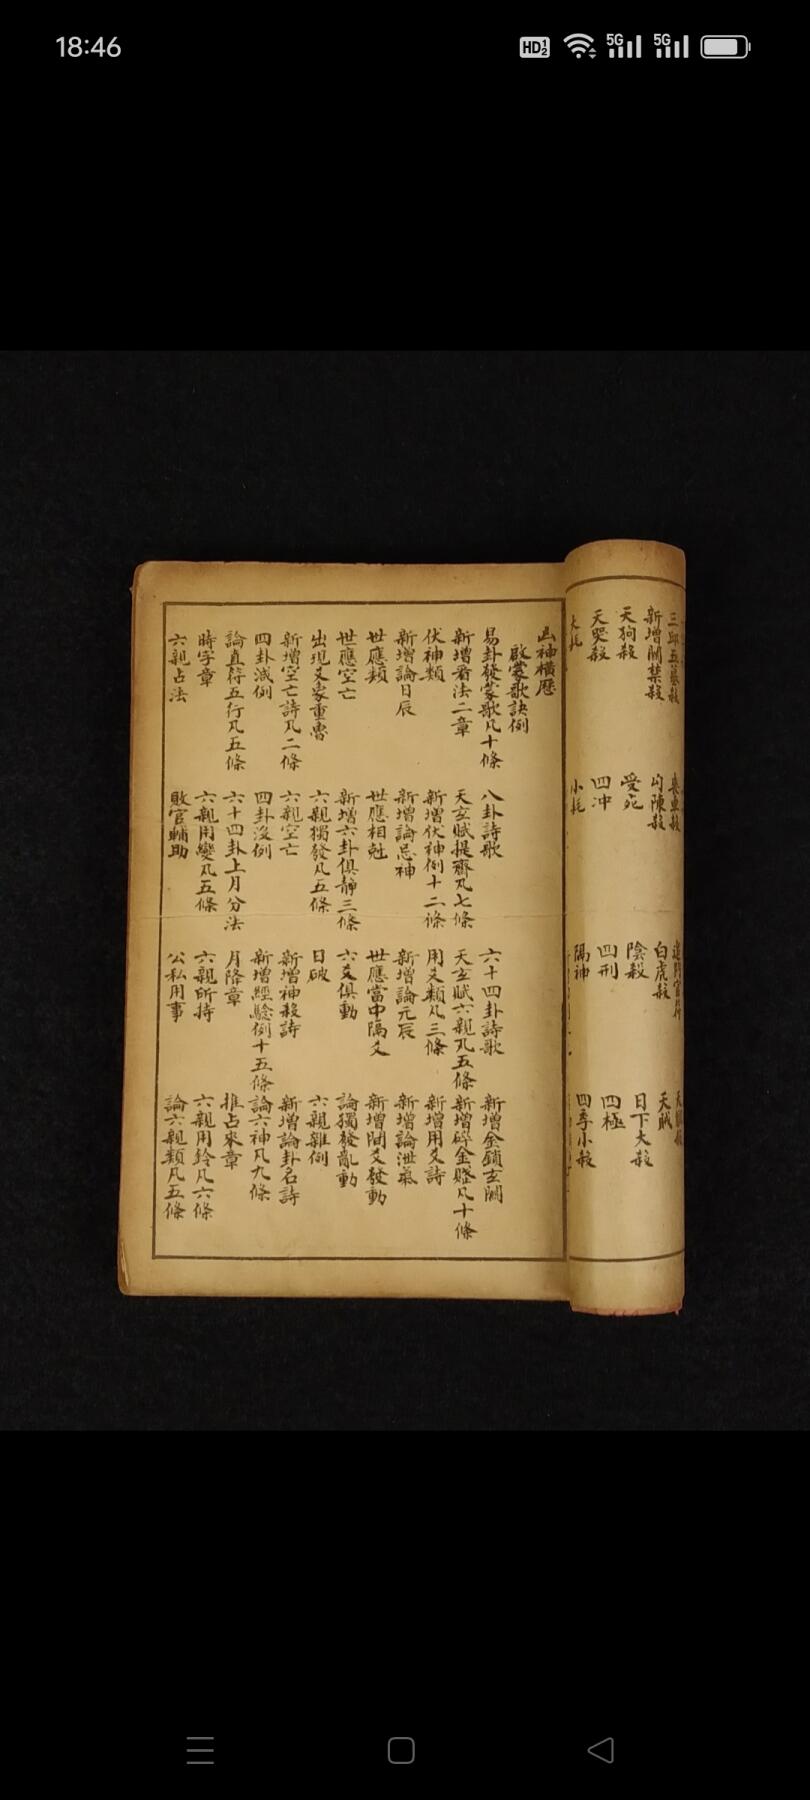 18:46
HD 5G 5G
新增關禁殺 勾陳殺 白虎殺 天賊
天狗殺 受死 陰殺 日下大殺
天哭殺 四冲 四刑 四極
大耗 小耗 隔神 四季小殺
凶神橫歷
啟蒙歌訣例
易卦發蒙歌凡十條 八卦詩歌 六十四卦詩歌 新增金鎖玄關
新增看法二章 天玄賦提齊凡七條 天玄賦六親凡五條 新增碎金賦凡十條
伏神類 新增伏神例十二條 用爻類凡三條 新增用爻詩
新增論日辰 新增論忌神 新增論元辰 新增論泄氣
世應類 世應相尅 世應當中隔爻 新增間爻發動
世應空亡 新增六卦俱静三條 六爻俱動 論獨發亂動
出現爻象重疊 六親獨發凡五條 日破 六親雜例
新增空亡詩凡二條 六親空亡 新增神殺詩 新增論卦名詩
四卦滅例 四卦没例 新增經驗例十五條 論六神凡九條
論直符五行凡五條 六十四卦上月分法 月降章 推占來章
時字章 六親用變凡五條 六親所持 六親用鈴凡六條
六親占法 敗官輔助 公私用事 論六親類凡五條